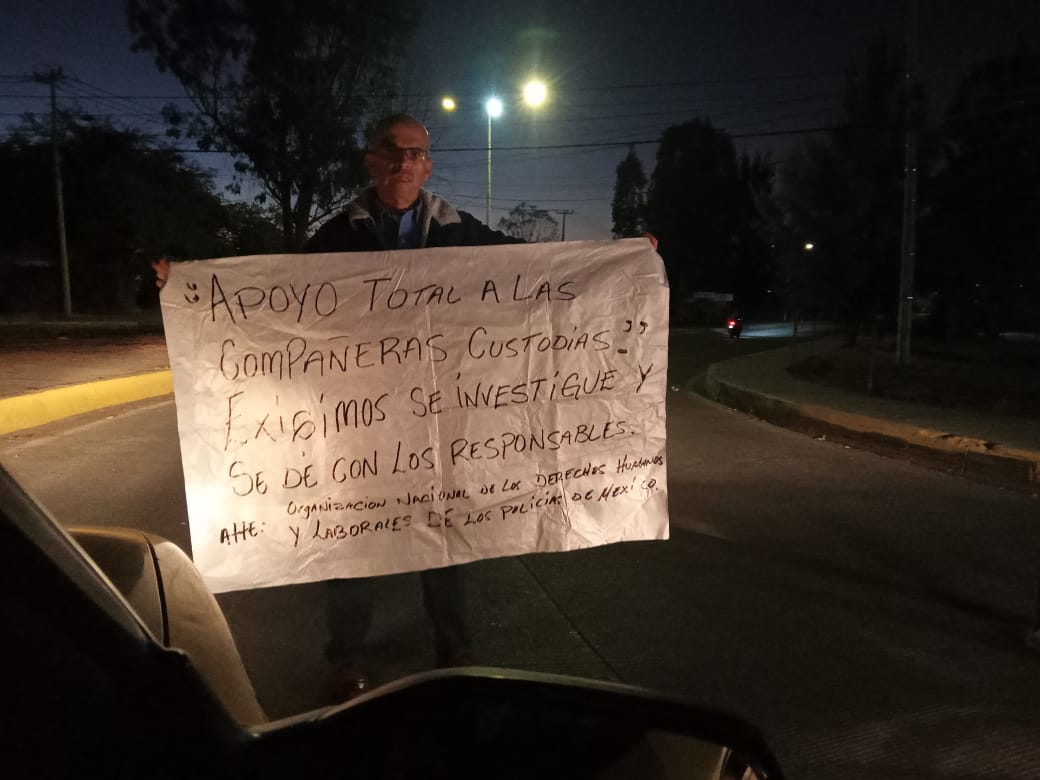 "APOYO TOTAL A LAS
COMPAÑERAS CUSTODIAS."
EXIGIMOS SE INVESTIGUE Y
SE DÉ CON LOS RESPONSABLES.
ORGANIZACION NACIONAL DE LOS DERECHOS HUMANOS
ATTE: Y LABORALES DE LOS POLICIAS DE MÉXICO.